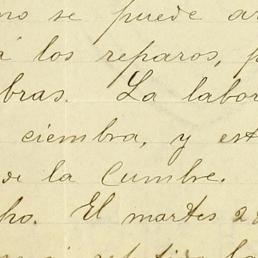 no se puede
á los reparos,
bras. La labor
ciembra, y est
de la Cumbre.
ho. El martes 2